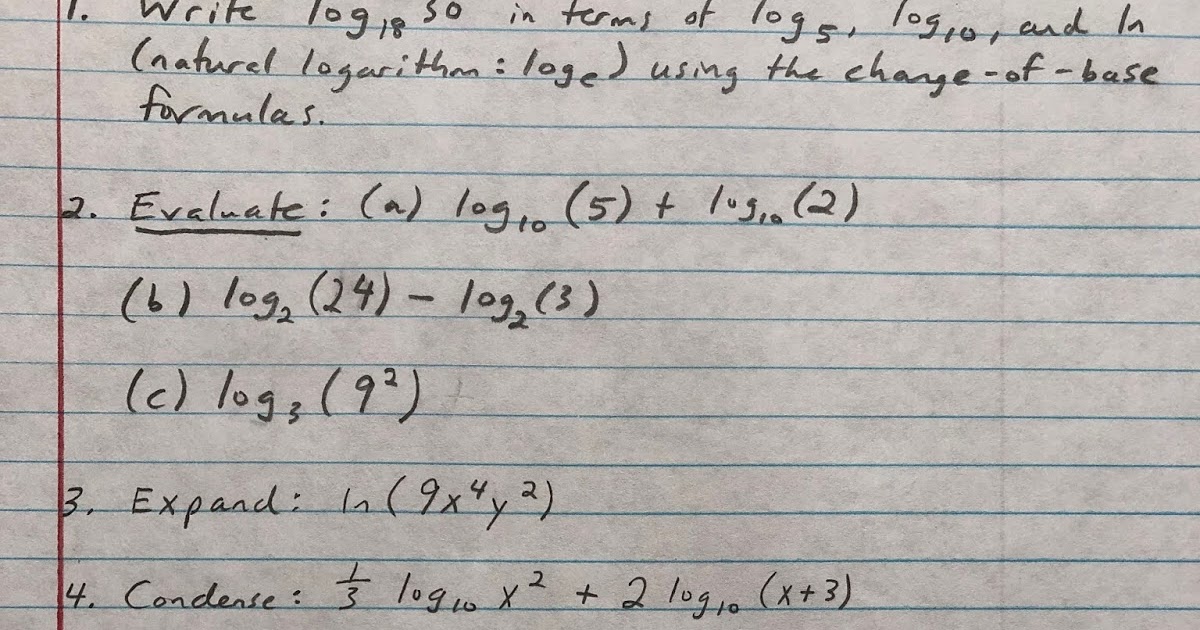 1. Write log₁₈ 50 in terms of log₅, log₁₀, and ln
(natural logarithm: logₑ) using the change-of-base
formulas.
2. Evaluate: (a) log₁₀(5) + log₁₀(2)
(b) log₂(24) - log₂(3)
(c) log₃(9²)
3. Expand: ln(9x⁴y²)
4. Condense: 1/3 log₁₀ x² + 2 log₁₀(x+3)